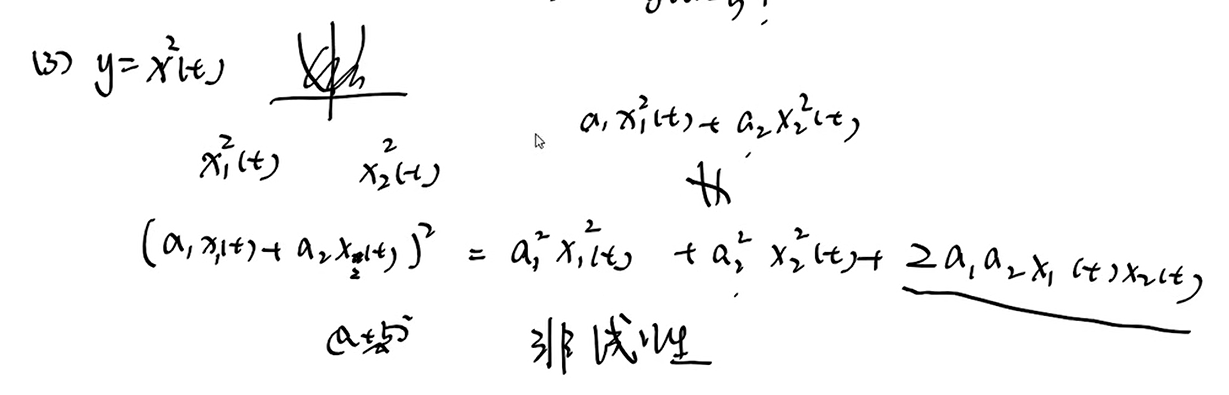 (3) y = x²(t)
a₁x₁²(t) + a₂x₂²(t)
x₁²(t) x₂²(t)
(a₁x₁(t) + a₂x₂(t))² = a₁²x₁²(t) + a₂²x₂²(t) + 2a₁a₂x₁(t)x₂(t)
(a+b)²
非线性